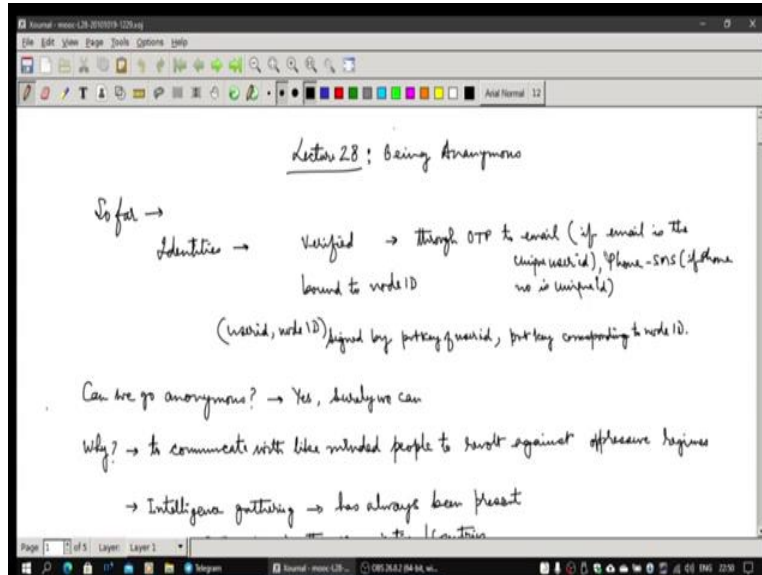 Xournal - mooc-L28-20101019-1229.xoj
File Edit View Page Tools Options Help
Arial Normal 12
Lecture 28 : Being Ananymous
So far →
Identities → Verified → through OTP to email (if email is the
unique userid), Phone-SMS (if phone
bound to node ID no is unique id)
(userid, node ID) signed by pvtkey of userid, pvt key corresponding to node ID.
Can we go anonymous? → Yes, surely we can
Why? → to communicate with like minded people to revolt against oppressive regimes
→ Intelligence gathering → has always been present
Page 1 of 5 Layer: Layer 1
Telegram Xournal - mooc-L28-... OBS 26.0.2 (64-bit, wi... ENG 22:50